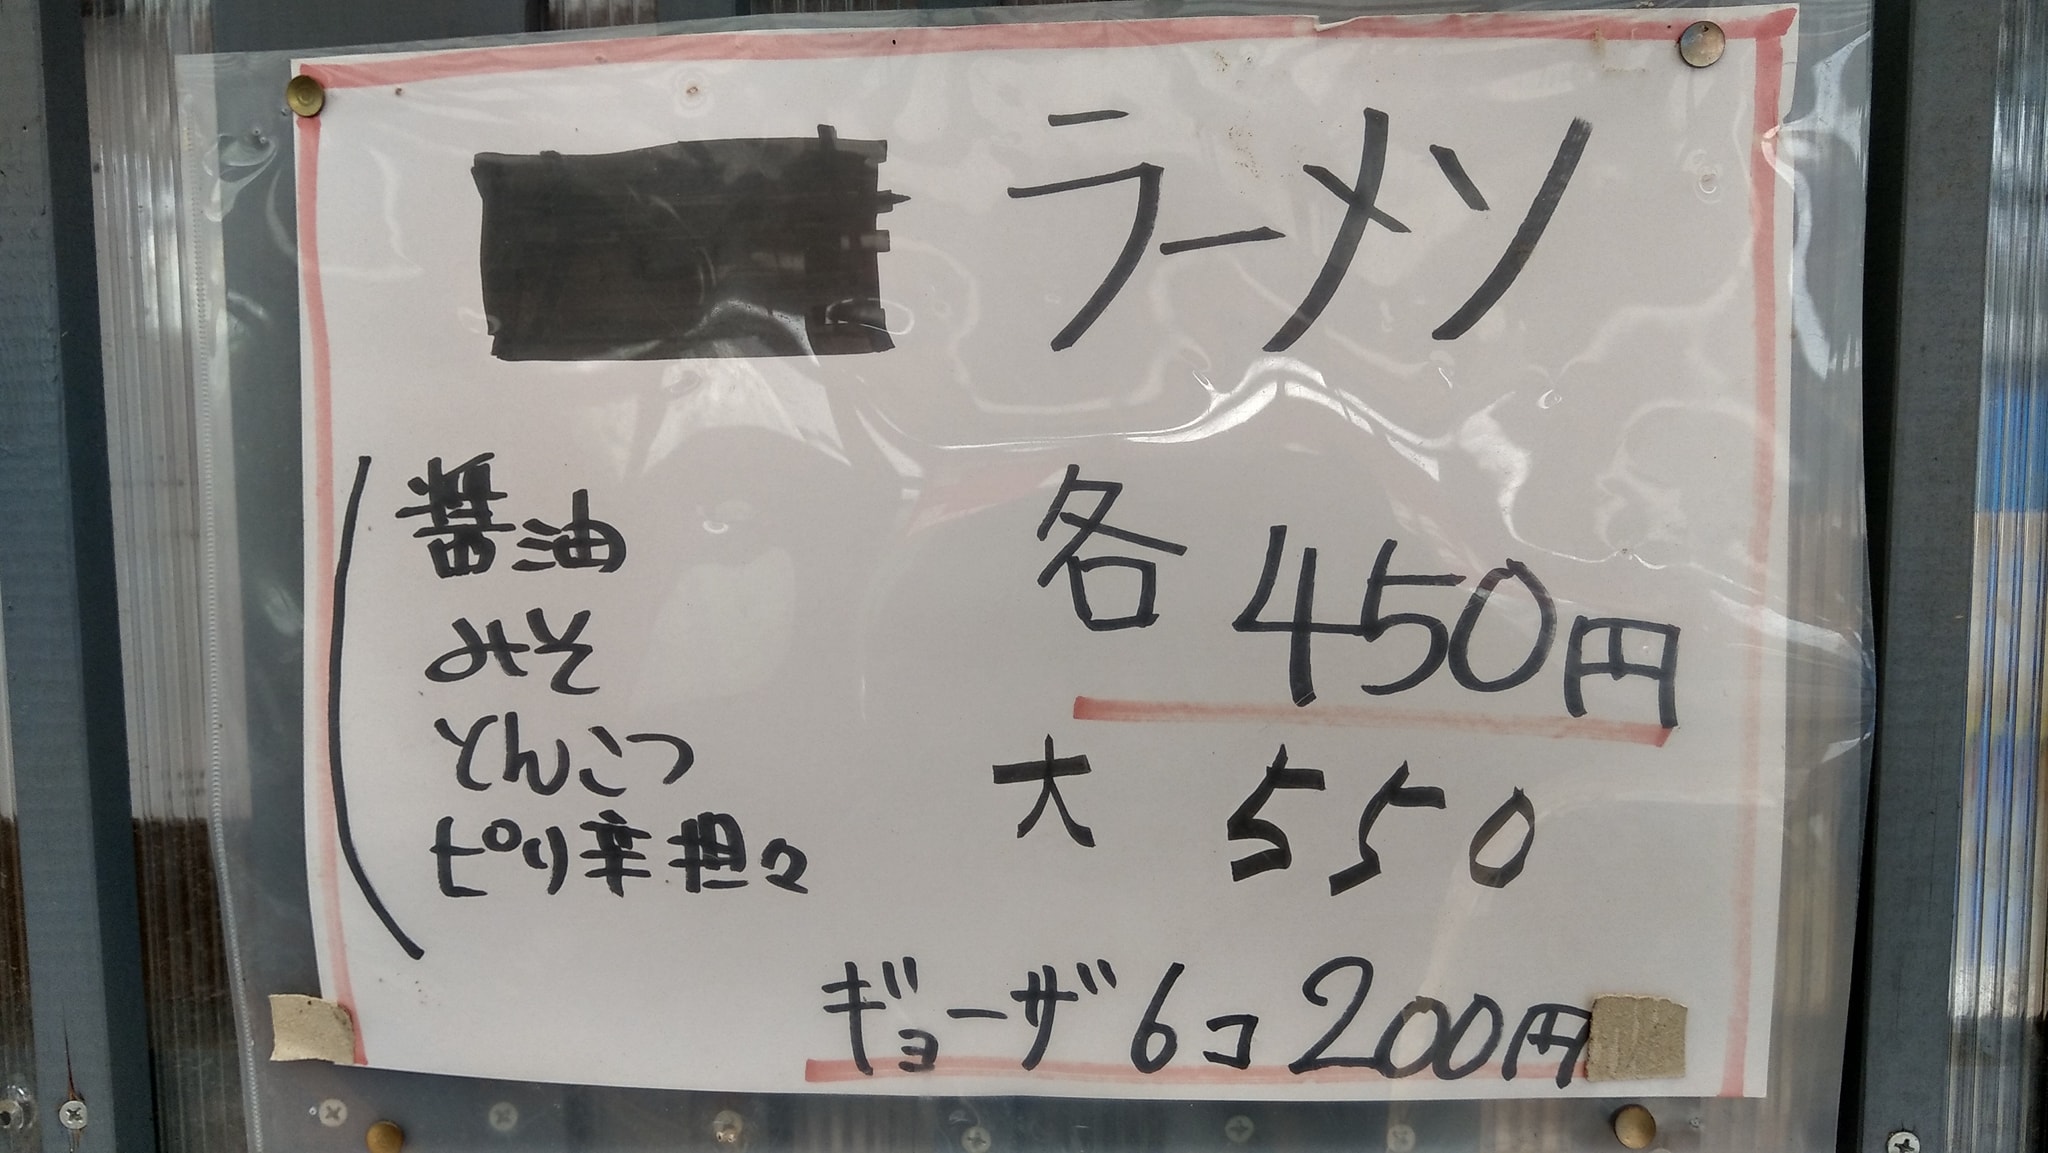 ラーメン
醤油
みそ
とんこつ
ピリ辛担々
各450円
大 550
ギョーザ6コ200円